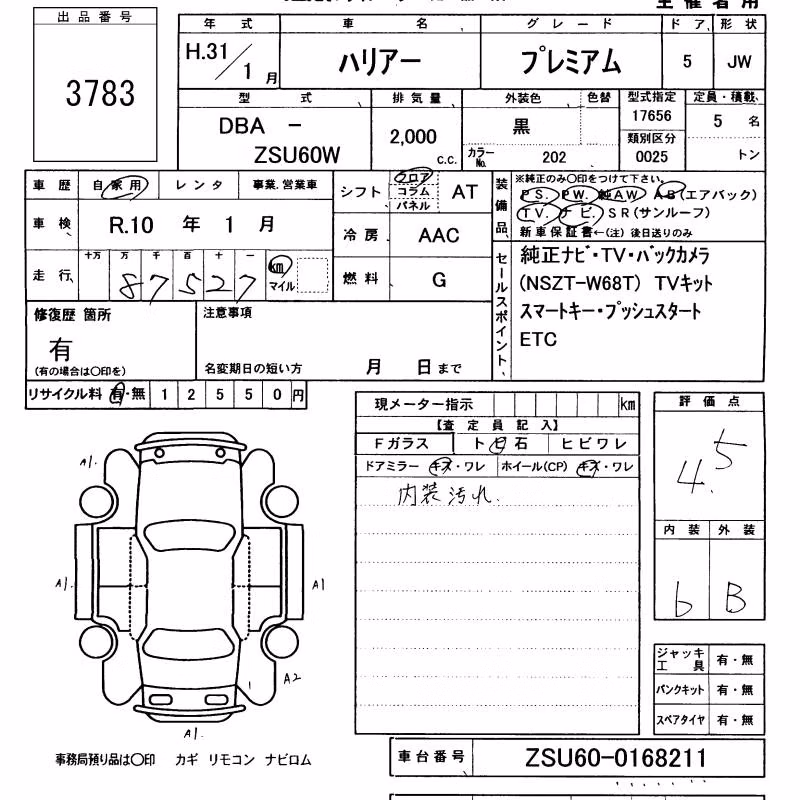 主催者用
出品番号
3783
年式 車名 グレード ドア 形状
H.31/1月 ハリアー プレミアム 5 JW
型式 排気量 外装色 色替 型式指定 定員・積載
17656
DBA - 2,000 黒 5名
類別区分
ZSU60W c.c. カラーNo. 202 0025 トン
車歴 自家用 レンタ 事業.営業車
シフト フロア コラム パネル AT
装備品 ※純正のみ○印をつけて下さい。
PS. PW. 純AW. AB(エアバック)
TV. ナビ. SR(サンルーフ)
新車保証書←(注) 後日送りのみ
車検 R.10 年 1 月
冷房 AAC
走行 十万 万 千 百 十 一
87527 km マイル
燃料 G
セールスポイント
純正ナビ・TV・バックカメラ
(NSZT-W68T) TVキット
スマートキー・プッシュスタート
ETC
修復歴 箇所
有
(有の場合は○印を)
注意事項
名変期日の短い方 月 日まで
リサイクル料 有・無 12550円
現メーター指示 km
【査定員記入】
Fガラス トビ石 ヒビワレ
ドアミラー キズ・ワレ ホイール(CP) キズ・ワレ
内装汚れ.
評価点
4.5
内装 外装
b B
A1.
A1.
A1
A2
A1.
ジャッキ工具 有・無
パンクキット 有・無
スペアタイヤ 有・無
事務局預り品は○印 カギ リモコン ナビロム
車台番号 ZSU60-0168211